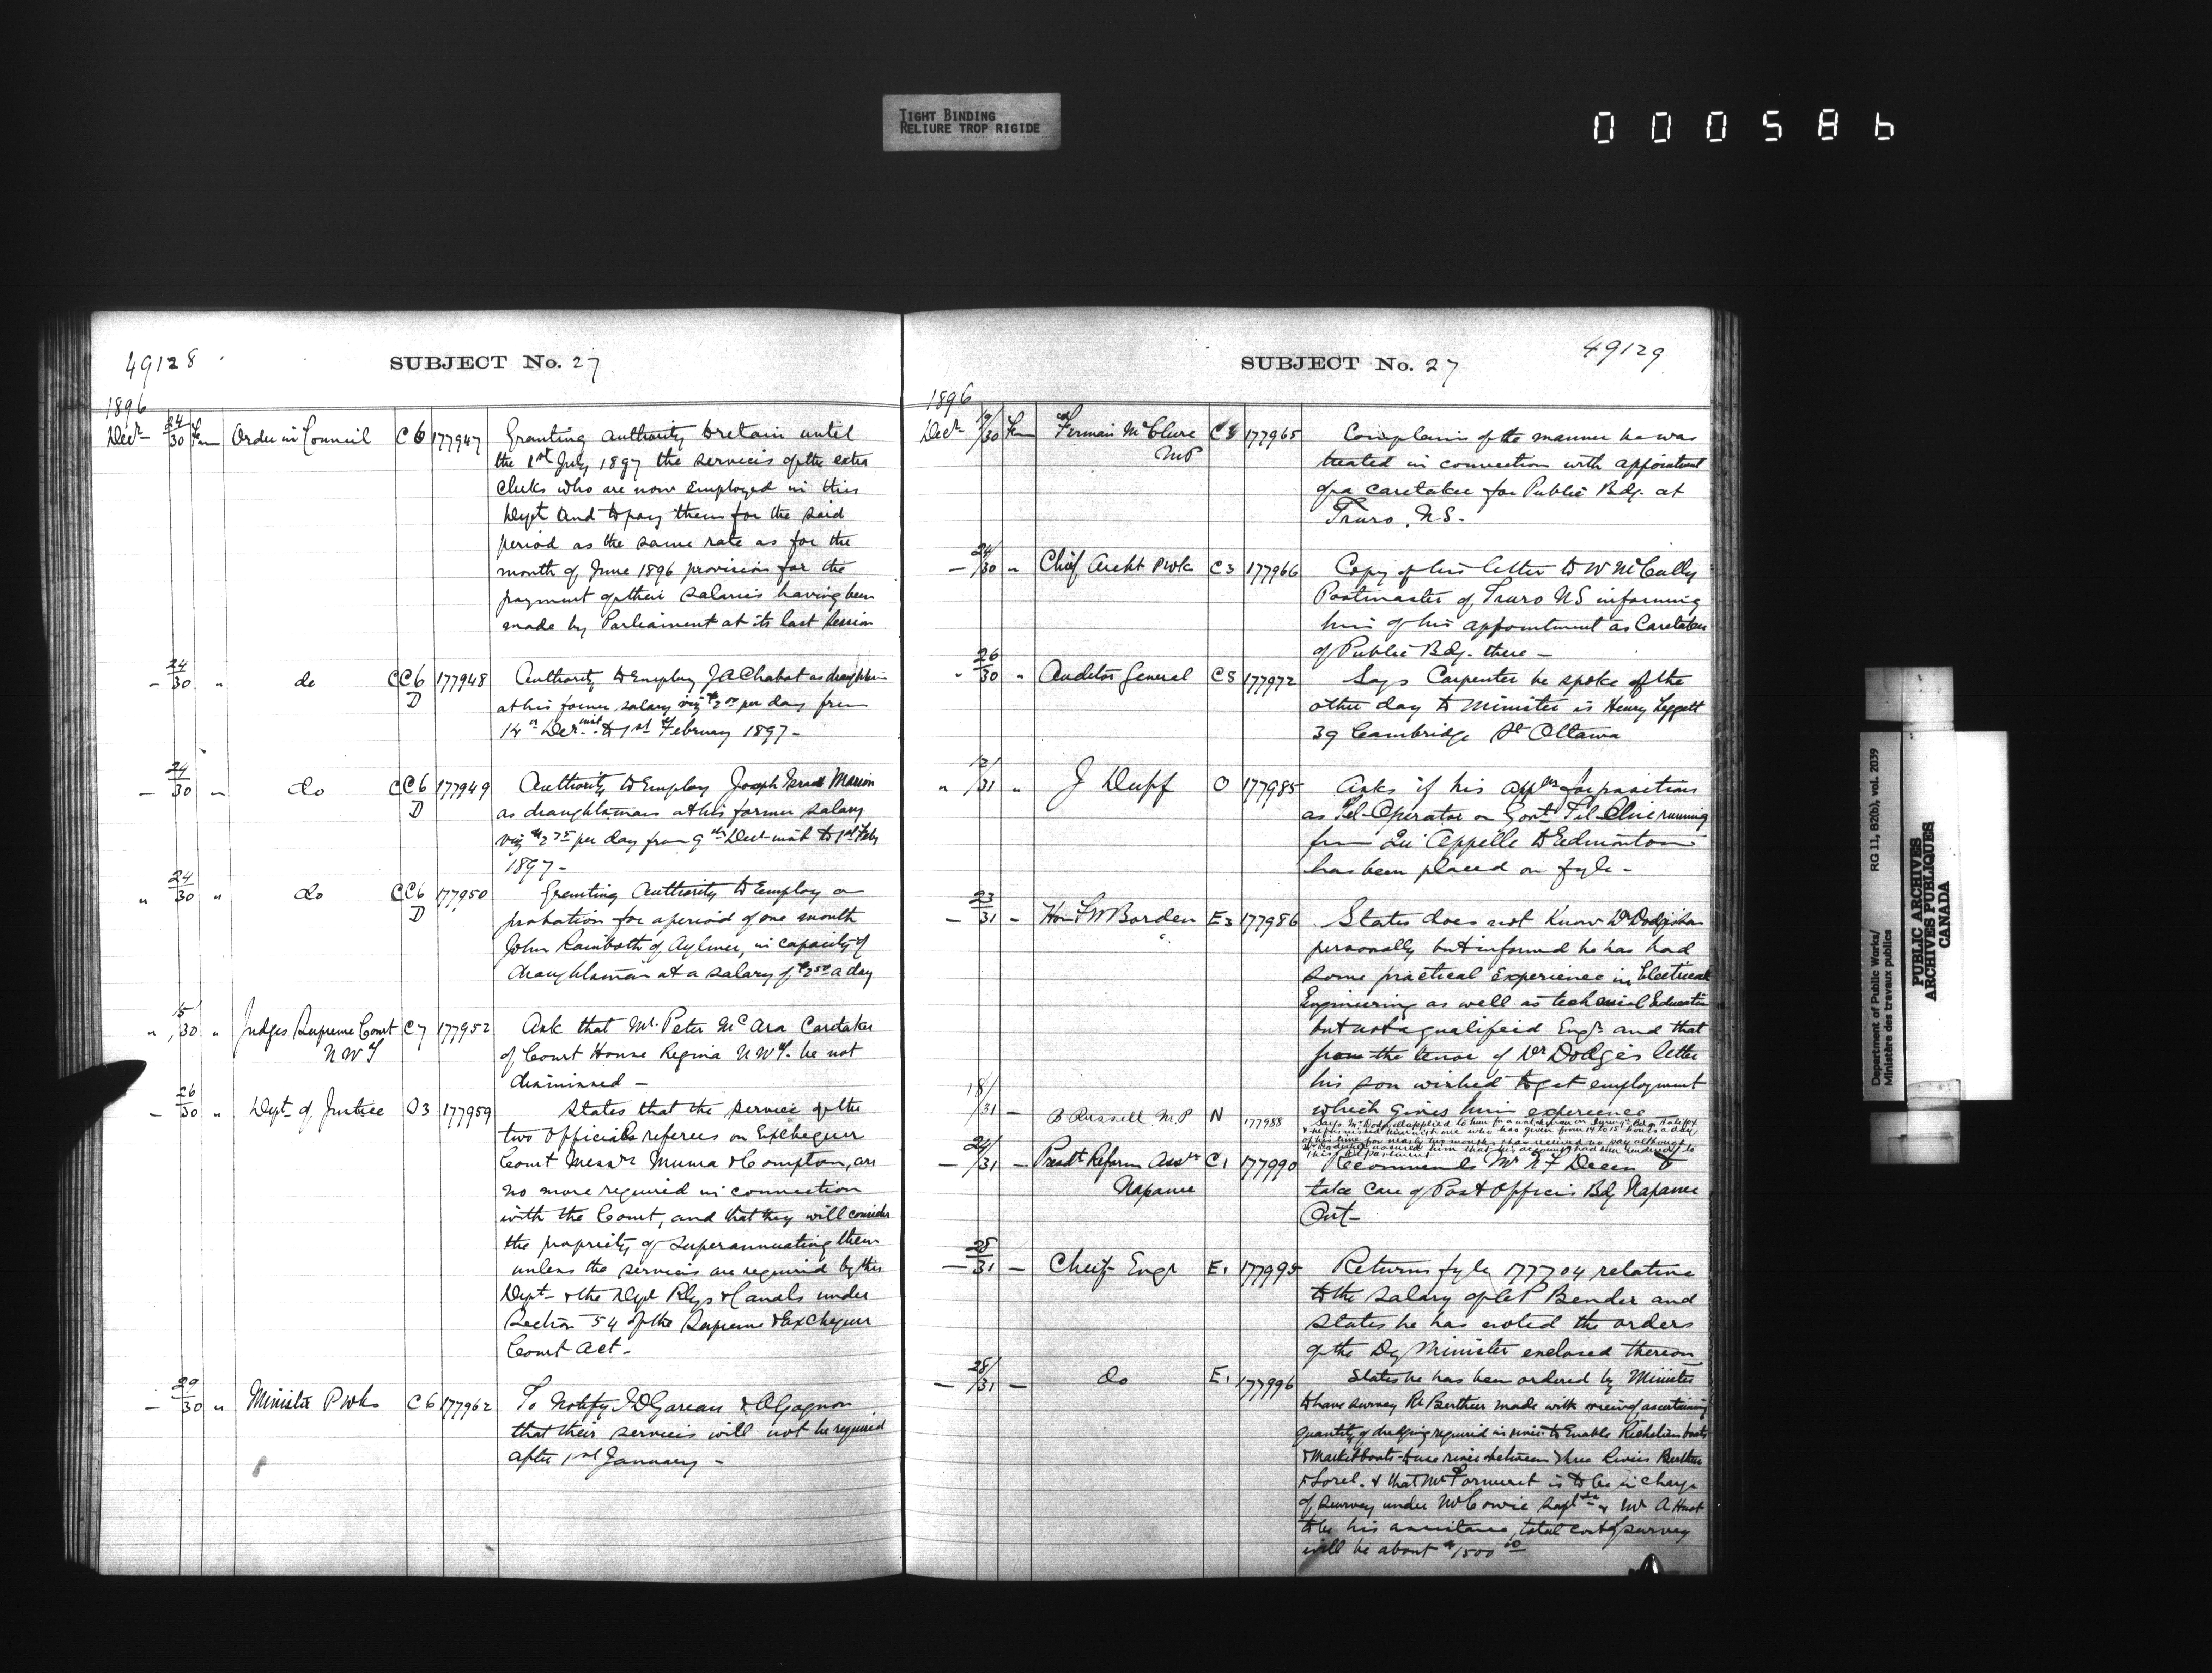 TIGHT BINDING
RELIURE TROP RIGIDE
000586
49128
SUBJECT No. 27
1896
Decr 24/30 Fm Order in Council C6 177947 Granting authority to retain until
the 1st July 1897 the services of the extra
clerks who are now employed in this
Dept and to pay them for the said
period as the same rate as for the
month of June 1896 provision for the
payment of their salaries having been
made by Parliament at its last session
— 24/30 " do CC6 D 177948 Authority to Employ J A Chabot as
at his former salary viz per day from
Decr inst to 1st of February 1897 -
— 24/30 " do CC6 D 177949 Authority to Employ Joseph Marion
as draughtsman at his former salary
viz $2 75 per day from 9th Decr inst to 1st Feby
1897 -
" 24/30 " do CC6 D 177950 Granting Authority to Employ on
probation for a period of one month
John Rainboth of Aylmer, in capacity of
draughtsman at a salary of $2 50 a day
" 15/30 " Judges Supreme Court C7 177952 Ask that Mr. Peter McAra Caretaker
NWT of Court House Regina NWT. be not
dismissed —
— 26/30 " Dept of Justice O3 177959 States that the service of the
two officials referees on Exchequer
Court Messrs Muma & Compton, are
no more required in connection
with the Court, and that they will consider
the propriety of superannuating them
unless the services are required by this
Dept - & the Dept Rlys & Canals under
Section 54 of the Supreme & Exchequer
Court Act -
— 29/30 " Minister P Wks C6 177962 To Notify & O Gagnon
that their services will not be required
after 1st January -
SUBJECT No. 27
49129
1896
Decr 30 Fm Firman McClure C 177965 Complains of the manner he was
MP treated in connection with appointment
of a caretaker for Public Bdg. at
Truro, N.S.
— 24/30 " Chief Archt P Wks C3 177966 Copy of his letter to W McCully
Postmaster of Truro NS informing
him of his appointment as Caretaker
of Public Bdg. there —
" 26/30 " Auditor General C8 177972 Says Carpenter he spoke of the
other day to Minister is Henry Leggett
39 Cambridge St Ottawa
" 31 " J Duff O 177985 Asks if his for position
as Tel-Operator on Govt Tel-Line running
from Qu'Appelle to Edmonton
has been placed on fyle -
— 23/31 - Hon F W Borden E3 177986 States does not know
personally but informed he has had
some practical experience in Electrical
Engineering as well as technical Education
but not a qualified Engr and that
from the tenor of Dr Dodge's letter
his son wished to get employment
which gives him experience
18/31 — B Russell M.P N 177988
— 24/31 — Presdt Reform Assn C1 177990 Recommends Mr to
Napanee take care of Post Office Bdg Napanee
Ont -
28/31 — Cheif Engr E1 177995 Returns fyle 177704 relative
to the salary of C P Bender and
states he has noted the orders
of the Dy Minister enclosed thereon
— 28/31 — do E1 177996 States he has been ordered by Minister
to have survey Rr Berthier made with view of ascertaining
quantity of dredging required in river to Enable Richelieu boats
& Market boats to use river between Three Rivers Berthier
& Sorel. & that Mr is to be in charge
of survey under Mr Cowie & Mr A
to be his assistance, total cost of survey
will be about $1500 00
Department of Public Works/
Ministère des travaux publics
RG 11, B2(b), vol. 2039
PUBLIC ARCHIVES
ARCHIVES PUBLIQUES
CANADA